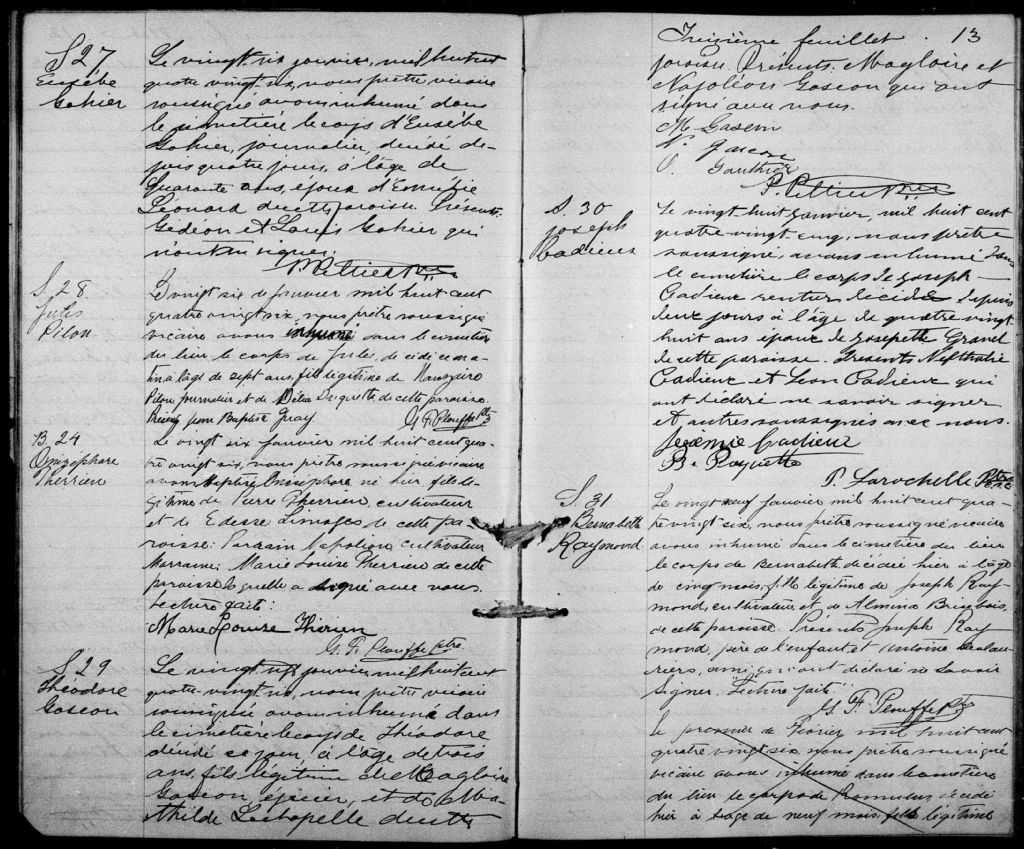 S 27
Eusèbe
Gohier
Le vingt six janvier, mil huit cent
quatre vingt six, nous prêtre vicaire
soussigné avons inhumé dans
le cimetière le corps d'Eusèbe
Gohier, journalier, décédé de-
puis quatre jours, à l'âge de
quarante ans, époux d'Esmérie
Léonard de cette paroisse. Présents
Gédéon et Louis Gohier qui
n'ont su signer.
P. Peltier Ptre
S. 28
Jules
Pilon
Le vingt six de Janvier mil huit cent
quatre vingt six, nous prêtre soussigné
vicaire avons inhumé dans le cimetière
du lieu le corps de Jules, décédé ce ma-
tin à l'âge de sept ans, fils légitime de
Pilon journalier et de Délia Duquette de cette paroisse.
Présent Jean Baptiste Guay. G. F. Plouffe Ptre
B. 24
Onésiphore
Therrien
Le vingt six Janvier mil huit cent qua-
tre vingt six, nous prêtre soussigné vicaire
avons baptisé Onésiphore né hier fils lé-
gitime de Pierre Therrien, cultivateur
et de Edesse Limoges de cette pa-
roisse: Parrain Napoléon cultivateur
Marraine: Marie Louise Therrien de cette
paroisse laquelle a signé avec nous.
Lecture faite:
Marie Louise Therien
G. F. Plouffe ptre
S 29
Théodore
Gascon
Le vingt six janvier, mil huit cent
quatre vingt six, nous prêtre vicaire
soussigné avons inhumé dans
le cimetière le corps de Théodore
décédé ce jour, à l'âge de trois
ans, fils légitime de Magloire
Gascon, épicier, et de Ma-
thilde Lachapelle de cette
Treizième feuillet. 13
paroisse. Présents: Magloire et
Napoléon Gascon qui ont
signé avec nous.
M. Gascon
N. Gascon
O. Gauthier
P. Peltier Ptre
S. 30
Joseph
Cadieux
Le vingt-huit Janvier, mil huit cent
quatre-vingt-cinq, nous prêtre
soussigné, avons inhumé dans
le cimetière le corps de Joseph
Cadieux rentier décédé depuis
deux jours à l'âge de quatre vingt
huit ans époux de Josephte Gravel
de cette paroisse. Présents Nephtalie
Cadieux et Léon Cadieux qui
ont déclaré ne savoir signer
et autres soussignés avec nous.
Jérémie Cadieux
B. Paquette
P. Larochelle Ptre
S. 31
Bernadette
Raymond
Le vingt neuf Janvier mil huit cent qua-
tre vingt six, nous prêtre soussigné vicaire
avons inhumé dans le cimetière du lieu
le corps de Bernadette décédée hier à l'âge
de cinq mois, fille légitime de Joseph Ray-
mond, cultivateur et de Almina Brisebois,
de cette paroisse. Présents Joseph Ray
mond, père de l'enfant et Antoine
amis, qui ont déclaré ne savoir
signer. Lecture faite.
G. F. Plouffe Ptre
Le premier de Février mil huit cent
quatre vingt six, nous prêtre soussigné
vicaire avons inhumé dans le cimetière
du lieu le corps de Romulus, décédé
hier à l'âge de neuf mois, fils légitime